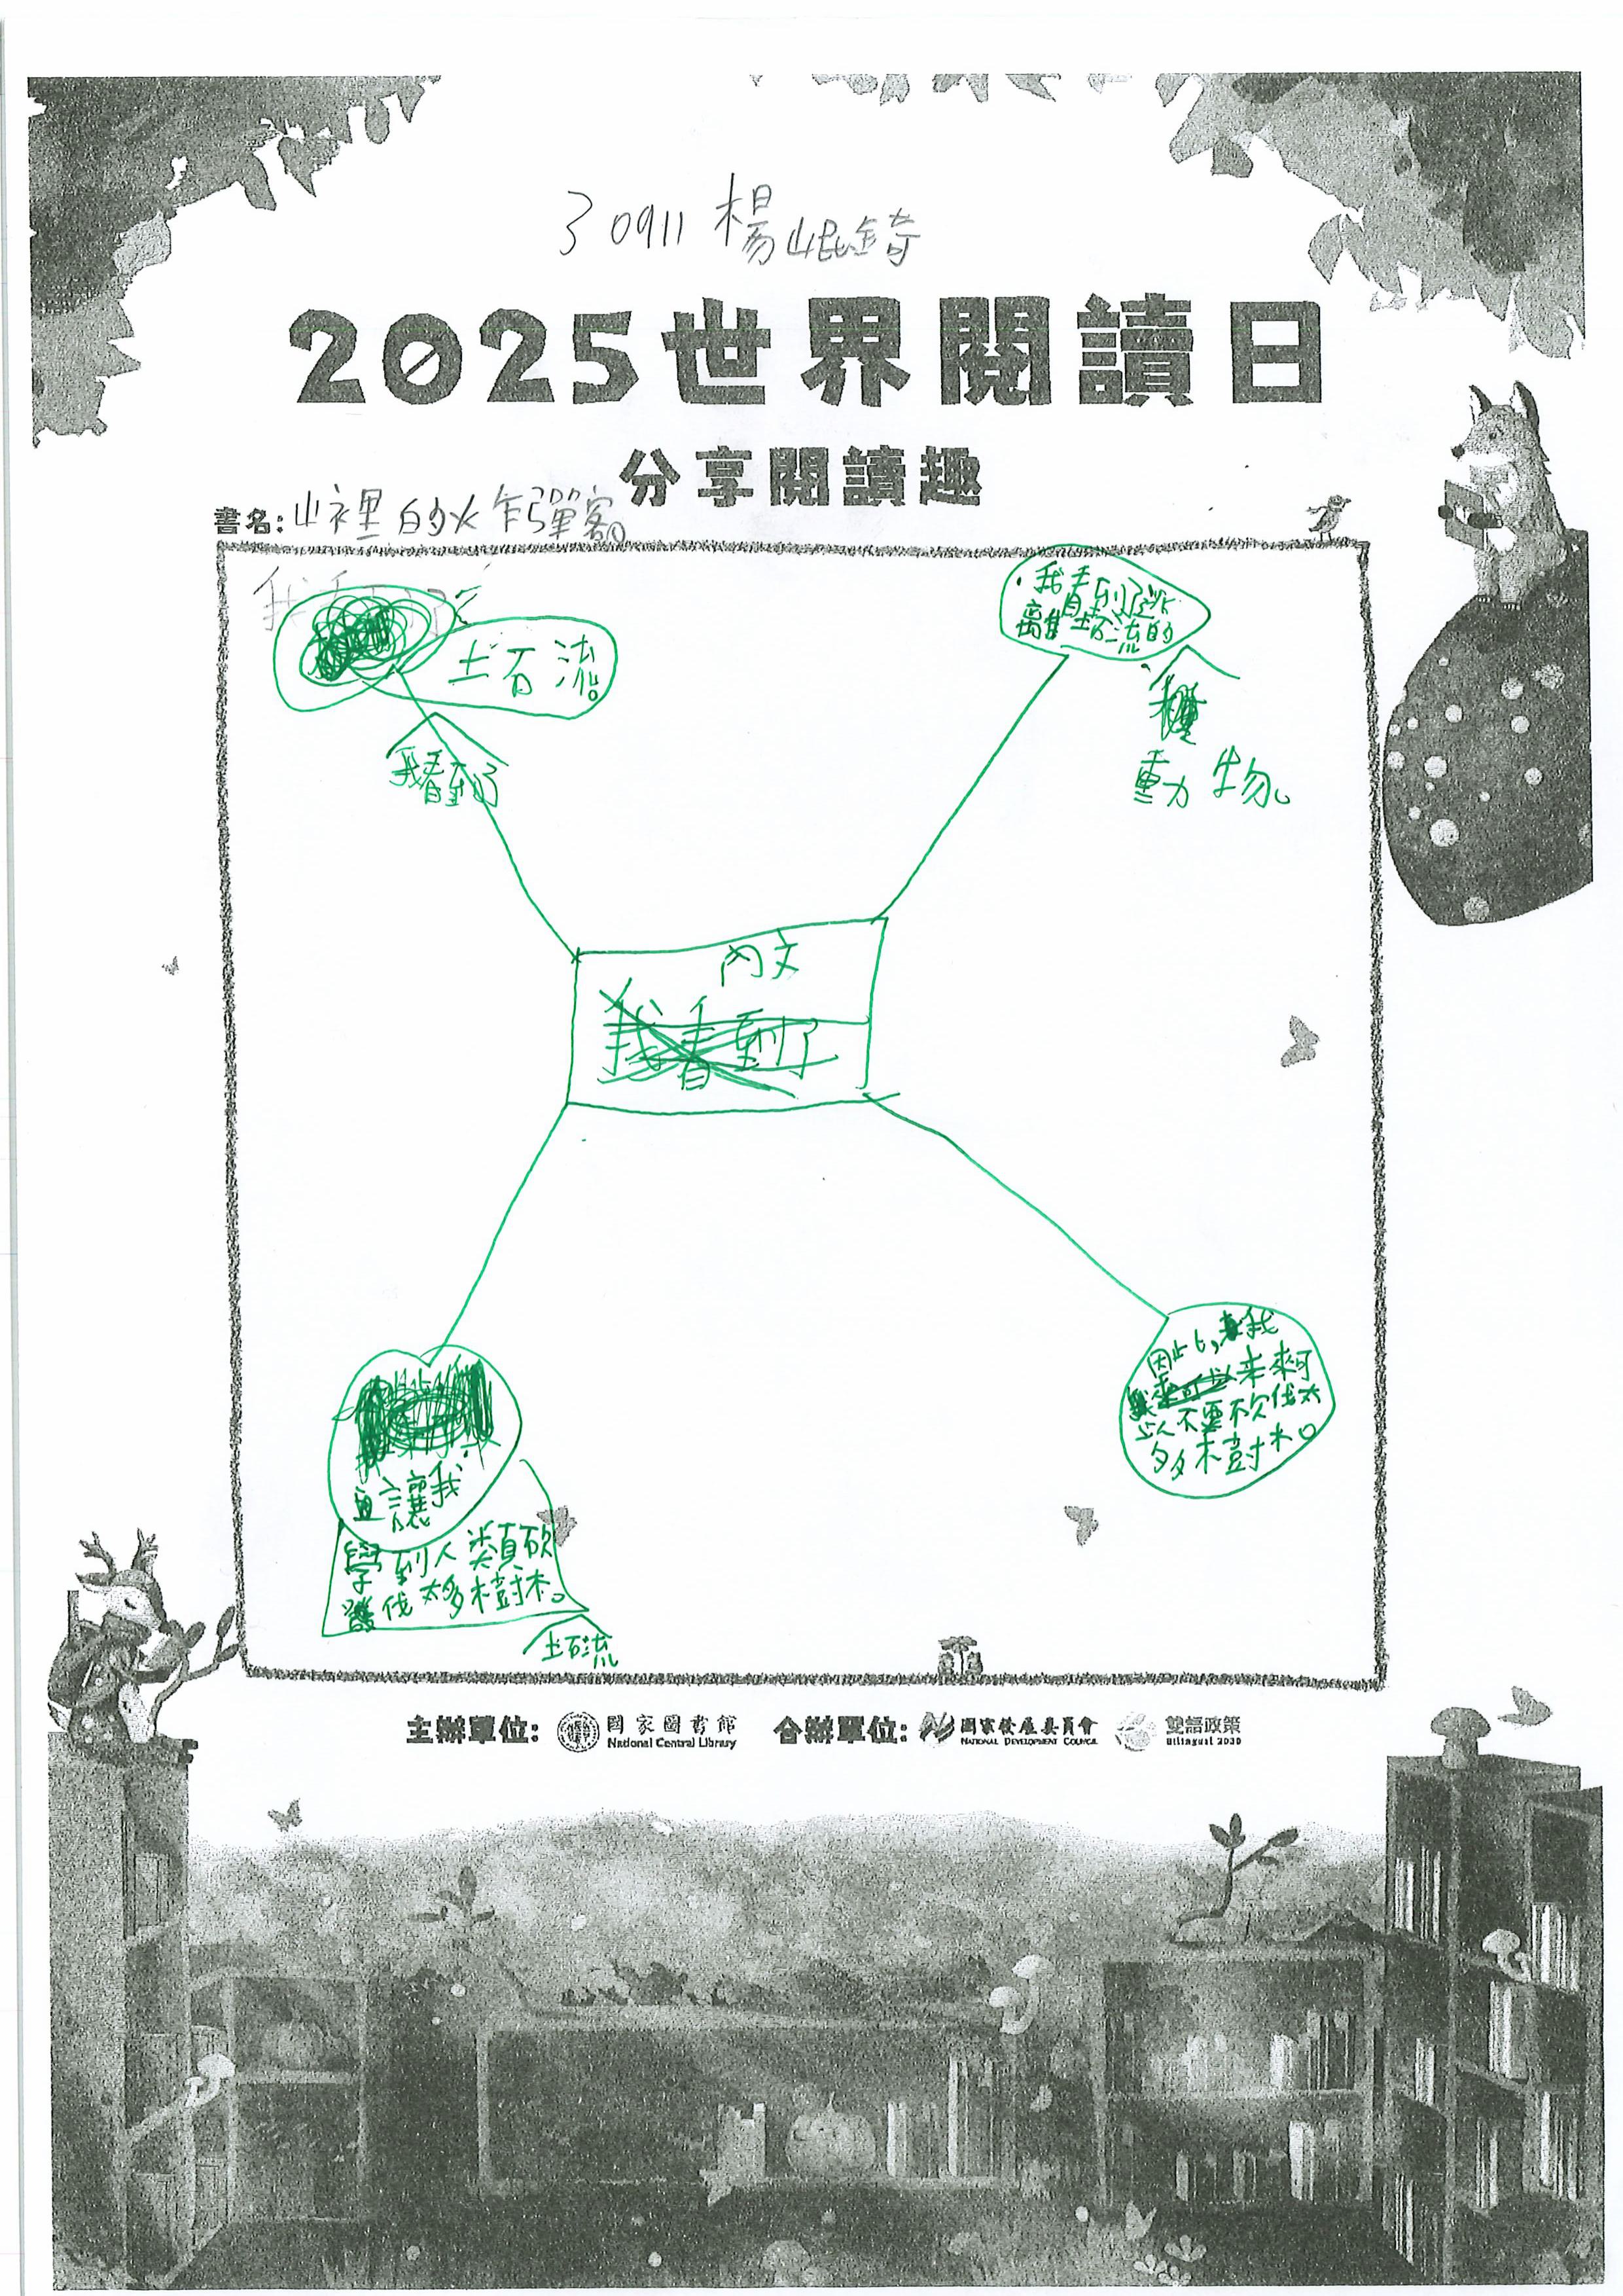 30911 楊岷錡
2025世界閱讀日
分享閱讀趣
書名:山裡的炸彈客。
土石流。
我看到了
我看到了逃
離土石流的
動物。
內文
我看到了
因此,我
未來可
以不要砍伐太
多樹木。
讓我
學到人類砍
伐太多樹木。
土石流
主辦單位: 國家圖書館
National Central Library
合辦單位: 國家發展委員會
NATIONAL DEVELOPMENT COUNCIL
雙語政策
Bilingual 2030